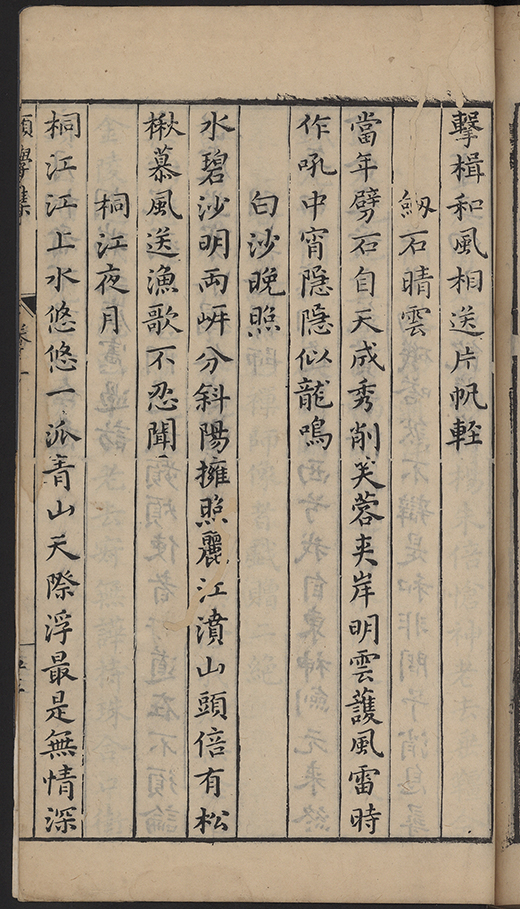 擊楫和風相送片帆輊
釼石晴雲
當年劈石自天成秀削芙蓉夾岸明雲護風雷時
作吼中宵隱隱似龍鳴
白沙晚照
水碧沙明両岍分斜陽擁照麗江濆山頭倍有松
楸慕風送漁歌不忍聞
桐江夜月
桐江江上水悠悠一派青山天際浮最是無情深